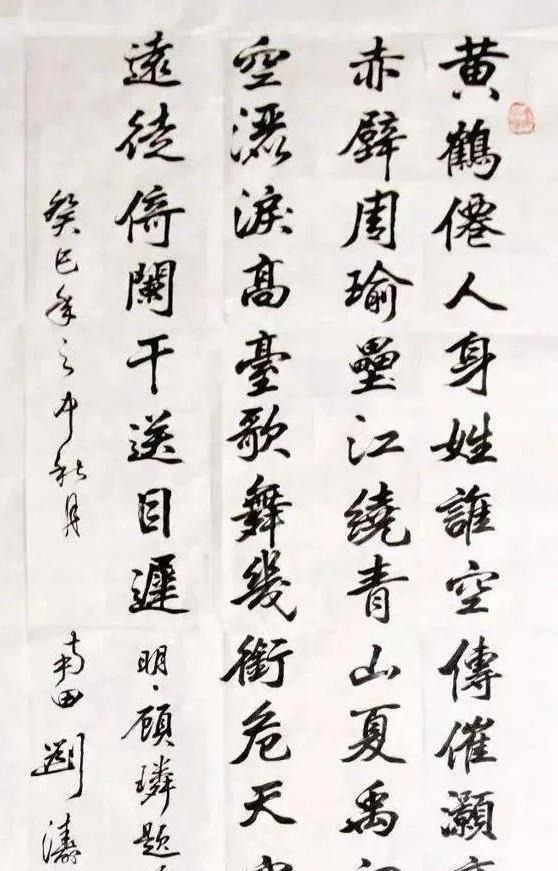 黄鶴僊人身姓誰空傳催灝
赤壁周瑜壘江繞青山夏禹
空灑淚高臺歌舞幾銜危天
遠徒倚闌干送目遲明·顧璘題
癸巳年之中秋月
南田劉濤